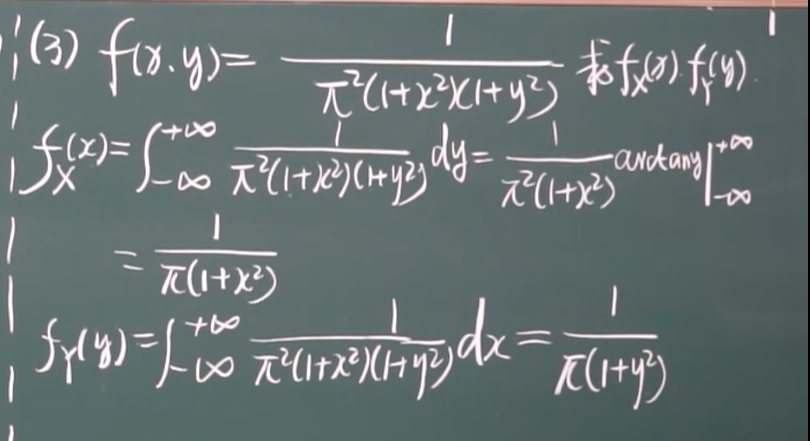 (3) f(x.y)= 1/(π²(1+x²)(1+y²)) 求f_X(x).f_Y(y).
f_X(x)=∫_{-∞}^{+∞} 1/(π²(1+x²)(1+y²)) dy= 1/(π²(1+x²)) arctany|_{-∞}^{+∞}
= 1/(π(1+x²))
f_Y(y)=∫_{-∞}^{+∞} 1/(π²(1+x²)(1+y²)) dx= 1/(π(1+y²))